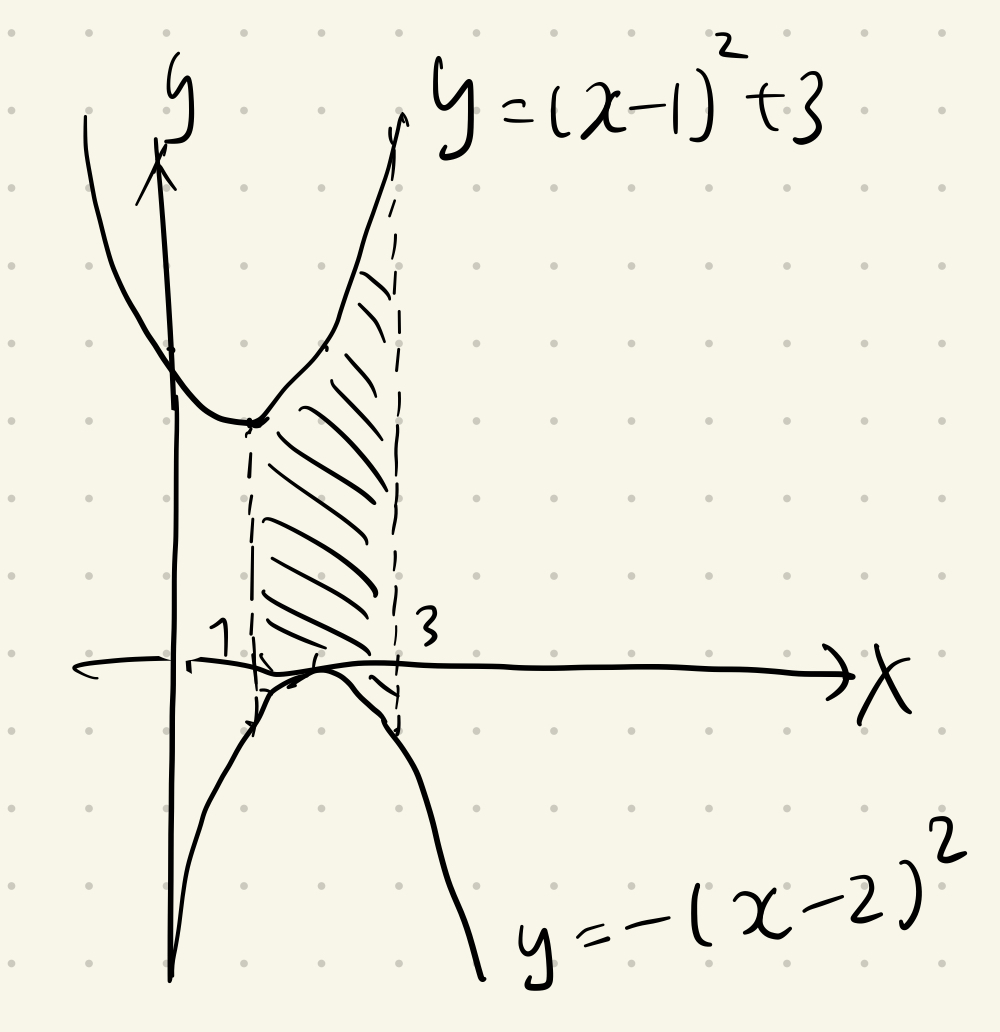 y
y = (x-1)² + 3
1
3
x
y = -(x-2)²